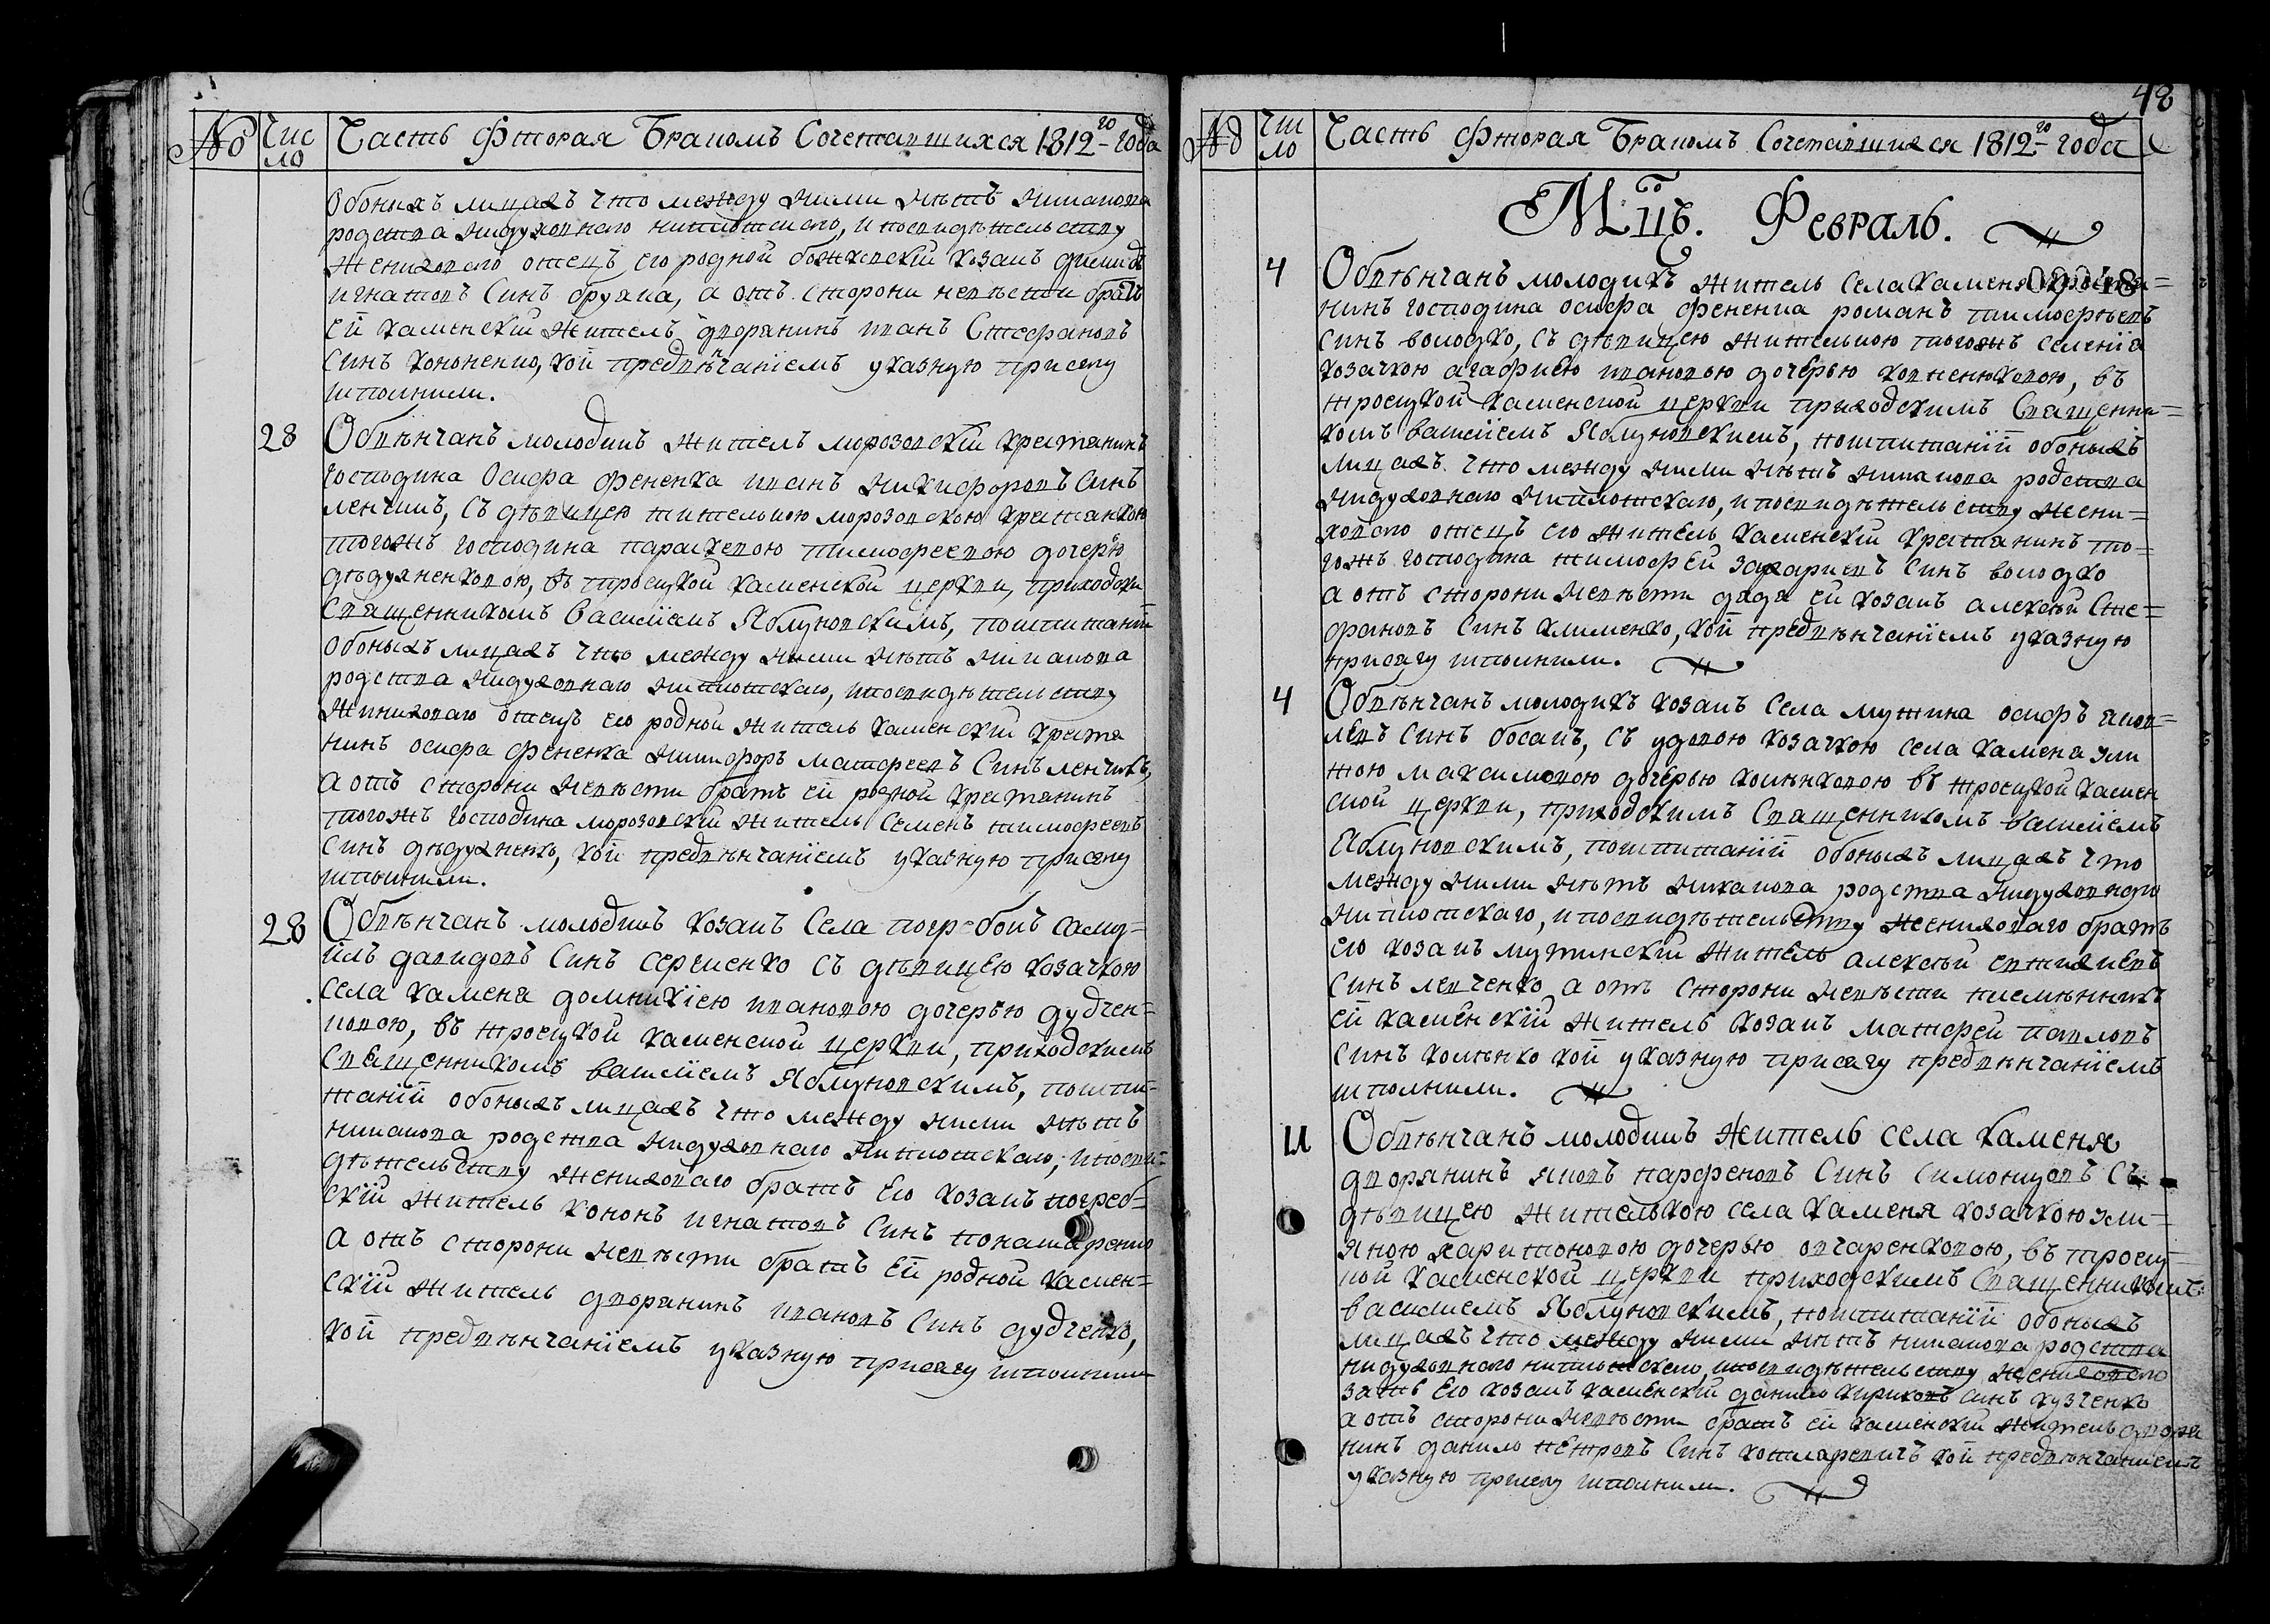 № Число Часть Фторая Бракомъ Сочетавшихся 1812-го года
Обоихъ лицахъ что между ними нѣтъ никакова
родства нидуховнаго ниплотскаго, и посвидѣтельству
женихового отецъ его родной божковскій козакъ
игнатовъ Синъ а отъ сторони невѣсти братъ
ей каменскій житель дворянинъ иванъ Стефановъ
Синъ кононенко, кой предвѣнчаніемъ указную присягу
исполнили.
28 Обвѣнчанъ молодикъ житель морозовскій крестянинъ
господина Осифа фененка иванъ никифоровъ Синъ
ленчикъ, съ дѣвицею жителькою морозовскою крестянкою
тогожъ господина параскевою тимофеевою дочерю
въ троецкой каменской церкви, приходски
Священникомъ василіемъ Яблуновскимъ, поспитаніи
обоныхъ лицахъ что между ними нѣтъ никакова
родства нидуховнаго ниплотскаго, ипосвидѣтельству
жинихового отецъ его родной житель каменскій крестя
нинъ осифа фененка никифоръ матфеевъ Синъ ленчикъ,
а отъ сторони невѣсти братъ ей родной крестянинъ
тогожъ господина морозовскій житель Семенъ тимофеевъ
Синъ кой предвѣнчаніемъ указную присягу
исполнили.
28 Обвѣнчанъ молодикъ козакъ Села погребокъ саму=
илъ давидовъ Синъ сергиенко съ дѣвицею козачкою
села каменя домникіею ивановою дочерью дудчен=
ковою, въ троецкой каменской церкви, приходскимъ
Священникомъ василіемъ Яблуновскимъ, поспи=
таніи обоныхъ лицахъ что между ними нѣтъ
никакова родства нидуховнаго ниплотскаго, ипосви=
дѣтельству женихового братъ его козакъ погреб=
скій житель кононъ игнатовъ Синъ
а отъ сторони невѣсти братъ ей родной камен=
скій житель дворянинъ ивановъ Синъ дудченко,
кой предвѣнчаніемъ указную присягу исполнили
48
№ Число Часть Фторая Бракомъ Сочетавшихся 1812-го года
Мцъ. Февраль.
00048
4 Обвѣнчанъ молодикъ житель Села каменя
нинъ господина осифа фененка романъ тимофеевъ
Синъ володко, съ дѣвицею жителькою тогожъ селенія
козачкою агафиею ивановою дочерью въ
троецкой каменской церкви приходскимъ Священни=
комъ василіемъ Яблуновскимъ, поспитаніи обоныхъ
лицахъ что между ними нѣтъ никакова родства
нидуховнаго ниплотскаго, ипосвидѣтельству жени=
хового отецъ его житель каменскій крестянинъ то=
гожъ господина тимофей захариевъ Синъ володко
а отъ сторони невѣсти дядя ей козакъ алексѣй Сте=
фановъ Синъ клименко, кой предвѣнчаніемъ указную
присягу исполнили.
4 Обвѣнчанъ молодикъ козакъ села мутина осифъ яков=
левъ Синъ босакъ, съ удовою козачкою села каменя
максимовою дочерью въ троецкой камен
ской церкви, приходскимъ Священникомъ василіемъ
Яблуновскимъ, поспитаніи обоныхъ лицахъ что
между ними нѣтъ никакова родства нидуховнаго
ниплотскаго, ипосвидѣтельству женихового братъ
его козакъ мутинскій житель алексѣй
Синъ левченко а отъ сторони невѣсти племѣнникъ
ей каменскій житель козакъ матфей павловъ
Синъ кой указную присягу предвѣнчаніемъ
исполнили.
11 Обвѣнчанъ молодикъ житель села каменя
дворянинъ яковъ парфеновъ Синъ съ
дѣвицею жителькою села каменя козачкою ули=
яною харитоновою дочерью овчаренковою, въ троец=
кой каменской церкви приходскимъ Священникомъ
василиемъ Яблуновскимъ, поспитаніи обоныхъ
лицахъ что между ними нѣтъ никакова родства
нидуховнаго ниплотскаго, ипосвидѣтельству женихового
зять его козакъ каменскій данило Синъ
а отъ сторони невѣсти братъ ей каменскій житель дворя
нинъ данило петровъ Синъ котляревичъ кой предвѣнчаніемъ
указную присягу исполнили.